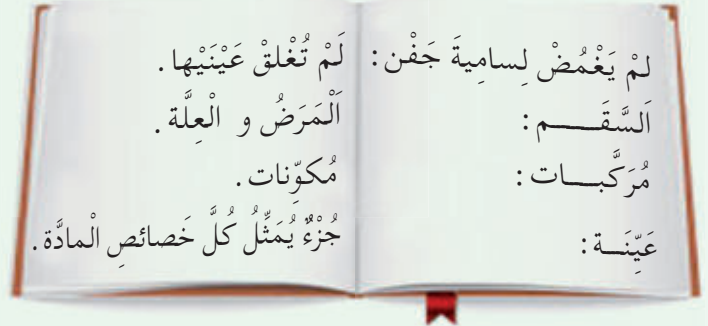 لمْ يَغْمُضْ لِسامِيةَ جَفْن: لَمْ تُغْلقْ عَيْنَيْها.
اَلسَّقَـــــم: اَلْمَرَضُ و الْعِلَّة.
مُرَكَّبـــات: مُكوِّنات.
عَيِّنَـــة: جُزْءٌ يُمَثِّلُ كُلَّ خَصائصِ الْمادَّة.